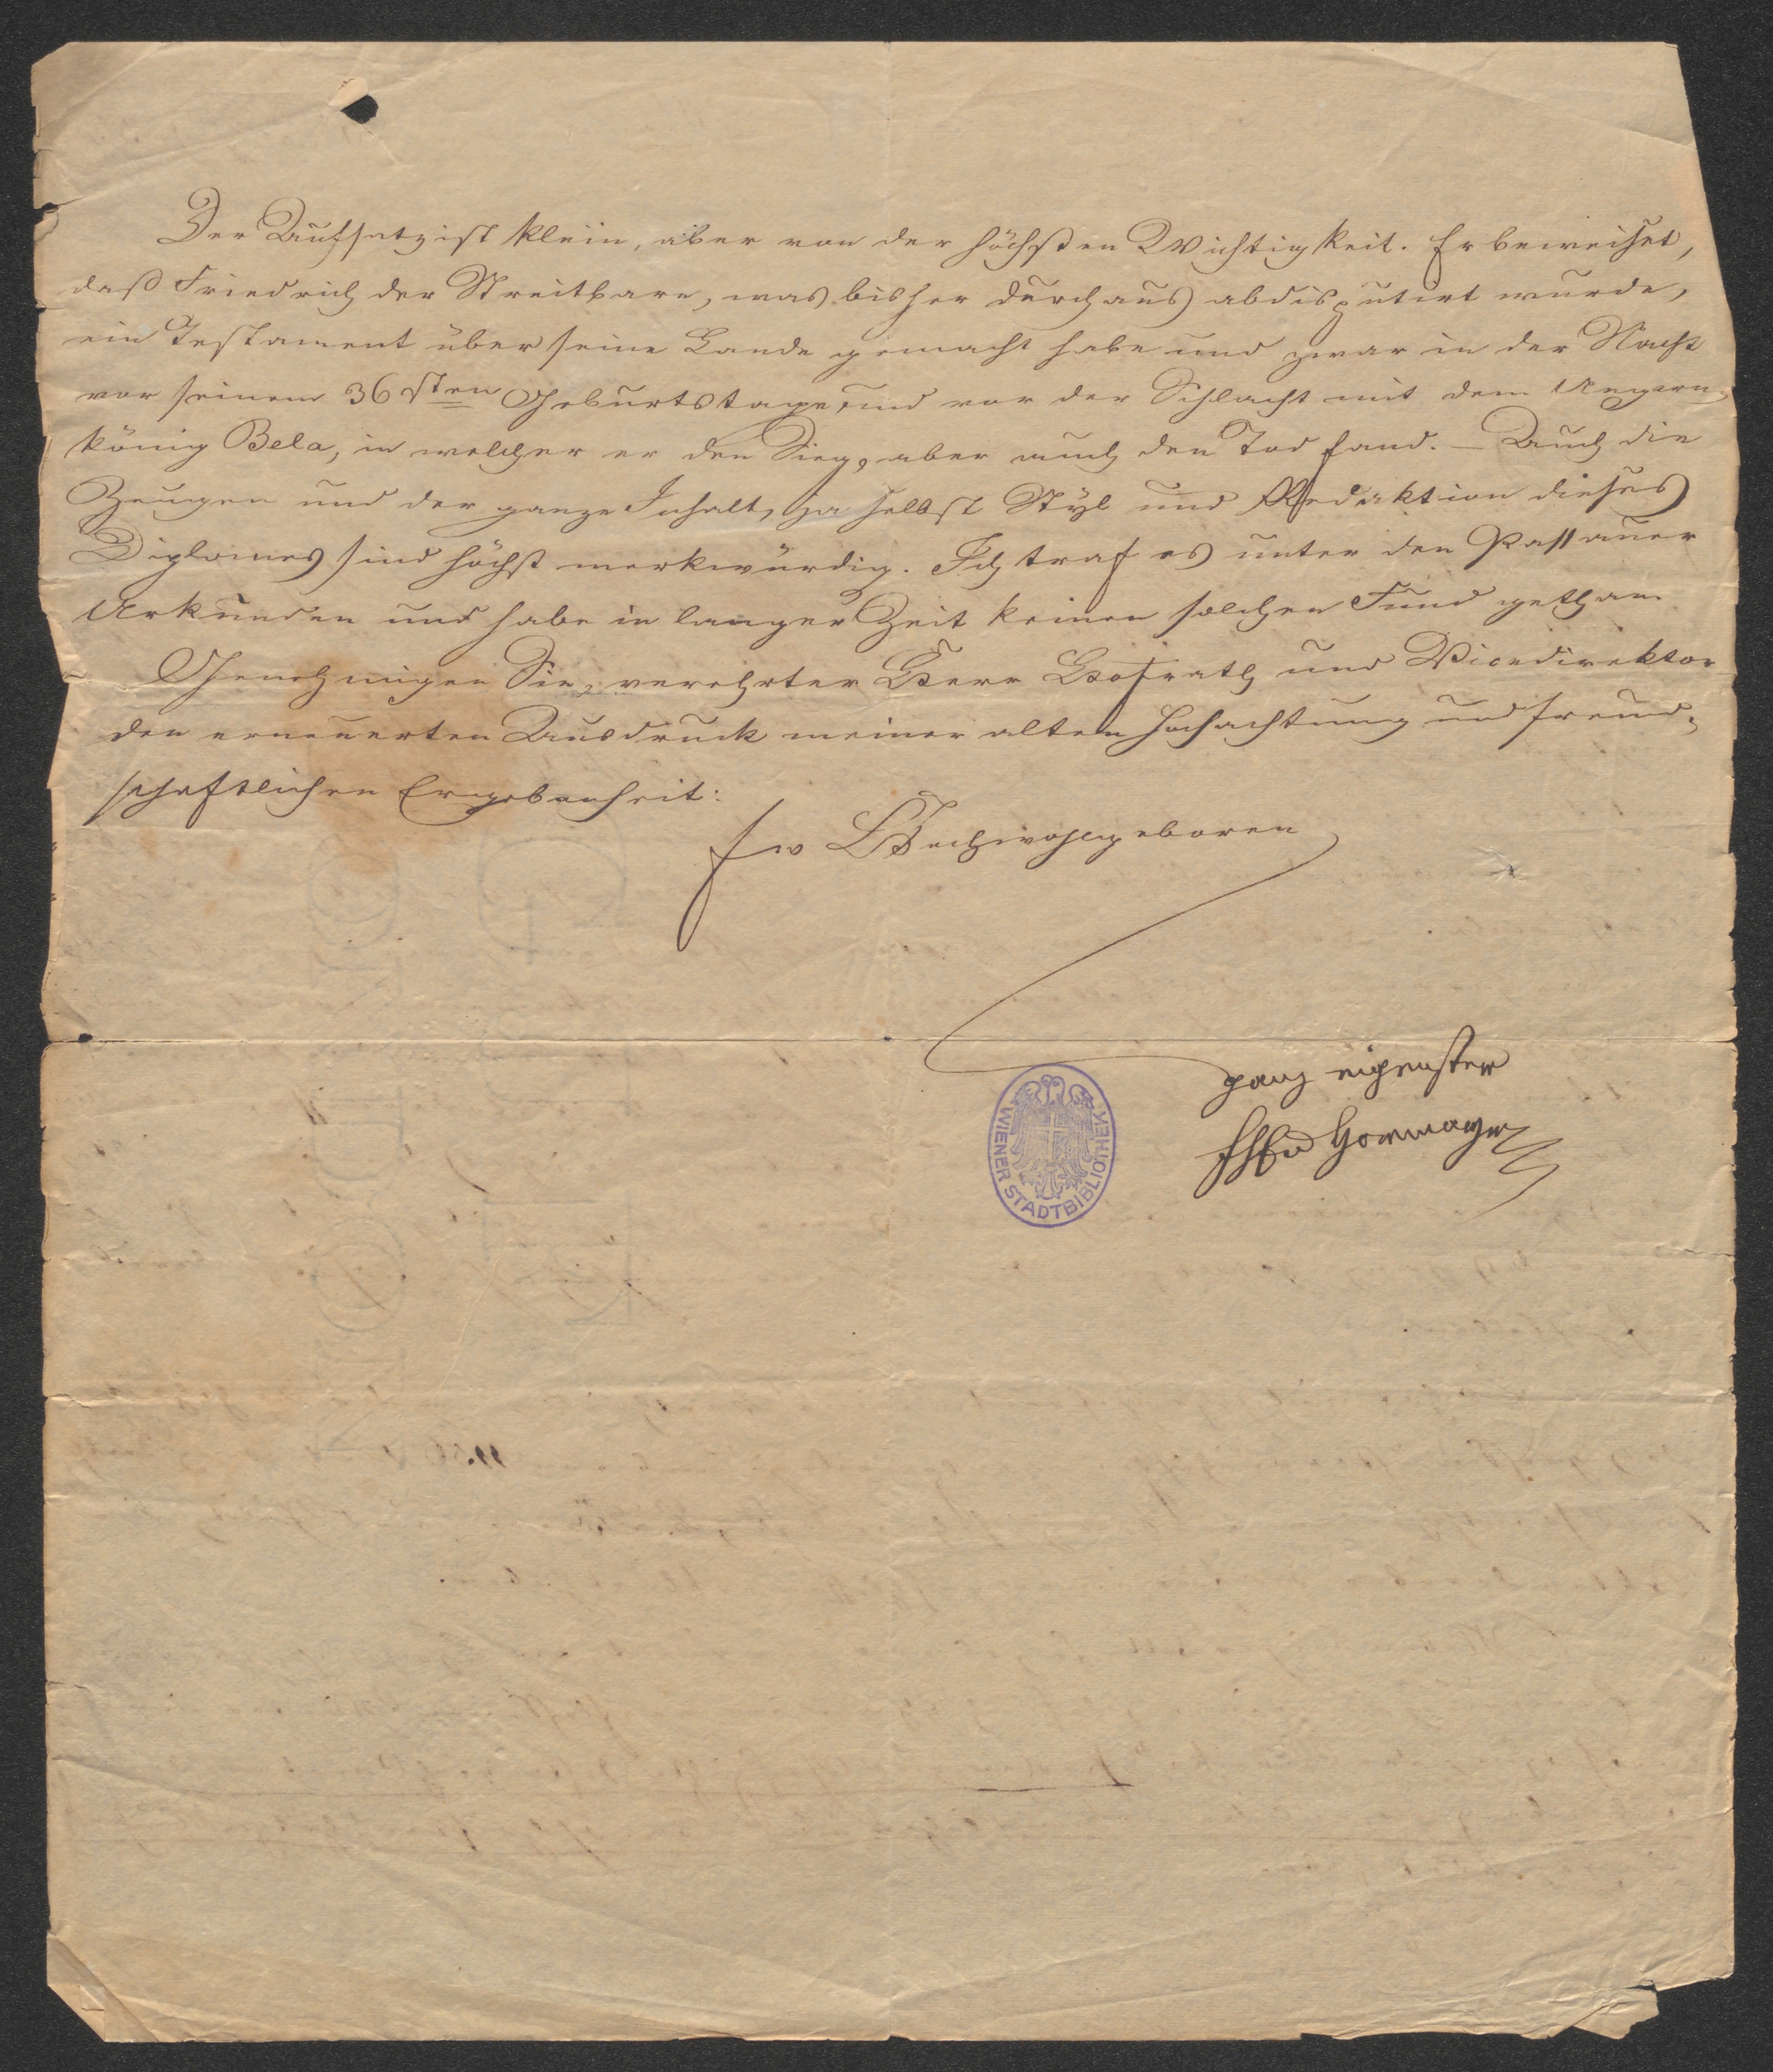 Der Aufsatz ist klein, aber von der höchsten Wichtigkeit. Er beweiset,
daß Friedrich der Streitbare, was bisher durchaus abdisputirt wurde,
ein Testament über seine Lande gemacht habe und zwar in der Nacht
vor seinem 36sten Geburtstage, und vor der Schlacht mit dem Ungarn-
könig Bela, in welcher er den Sieg, aber auch den Tod fand. — Auch die
Zeugen und der ganze Inhalt, ja selbst Styl und Redaktion dieses
Diplomes sind höchst merkwürdig. Ich traf es unter den Passauer
Urkunden und habe in langer Zeit keinen solchen Fund gethan.
Genehmigen Sie, verehrter Herr Hofrath und Vicedirektor
den erneuerten Ausdruck meiner alten Hochachtung und freund-
schaftlichen Ergebenheit:
Ew Hochwohlgeboren
ganz eigenster
Hormayr
WIENER STADTBIBLIOTHEK